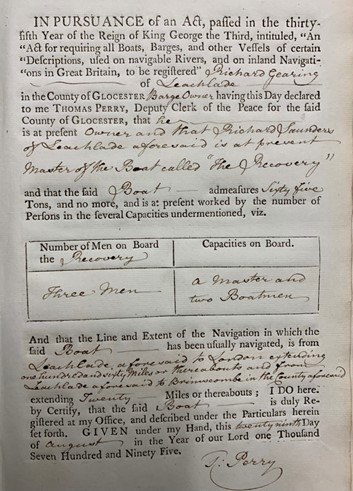 IN PURSUANCE of an Act, passed in the thirty-
fifth Year of the Reign of King George the Third, intituled, "An
"Act for requiring all Boats, Barges, and other Vessels of certain
"Descriptions, used on navigable Rivers, and on inland Navigati-
"ons in Great Britain, to be registered" Richard Gearing
of Leachlade
in the County of GLOCESTER Barge Owner having this Day declared
to me THOMAS PERRY, Deputy Clerk of the Peace for the said
County of GLOCESTER, that he
is at present Owner and that Richard Saunders
of Leachlade aforesaid is at present
Master of the Boat called "The Recovery"
and that the said Boat admeasures Sixty five
Tons, and no more, and is at present worked by the number of
Persons in the several Capacities undermentioned, viz.
Number of Men on Board
the Recovery
Capacities on Board.
Three Men
a Master and
two Boatmen
And that the Line and Extent of the Navigation in which the
said Boat has been usually navigated, is from
Leachlade aforesaid to London extending
one hundred and sixty Miles or thereabouts and from
Leachlade aforesaid to Brimscombe in the County aforesaid
extending Twenty Miles or thereabouts; I DO here-
by Certify, that the said Boat is duly Re-
gistered at my Office, and described under the Particulars herein
set forth. GIVEN under my Hand, this twenty ninth Day
of August in the Year of our Lord one Thousand
Seven Hundred and Ninety Five.
T: Perry